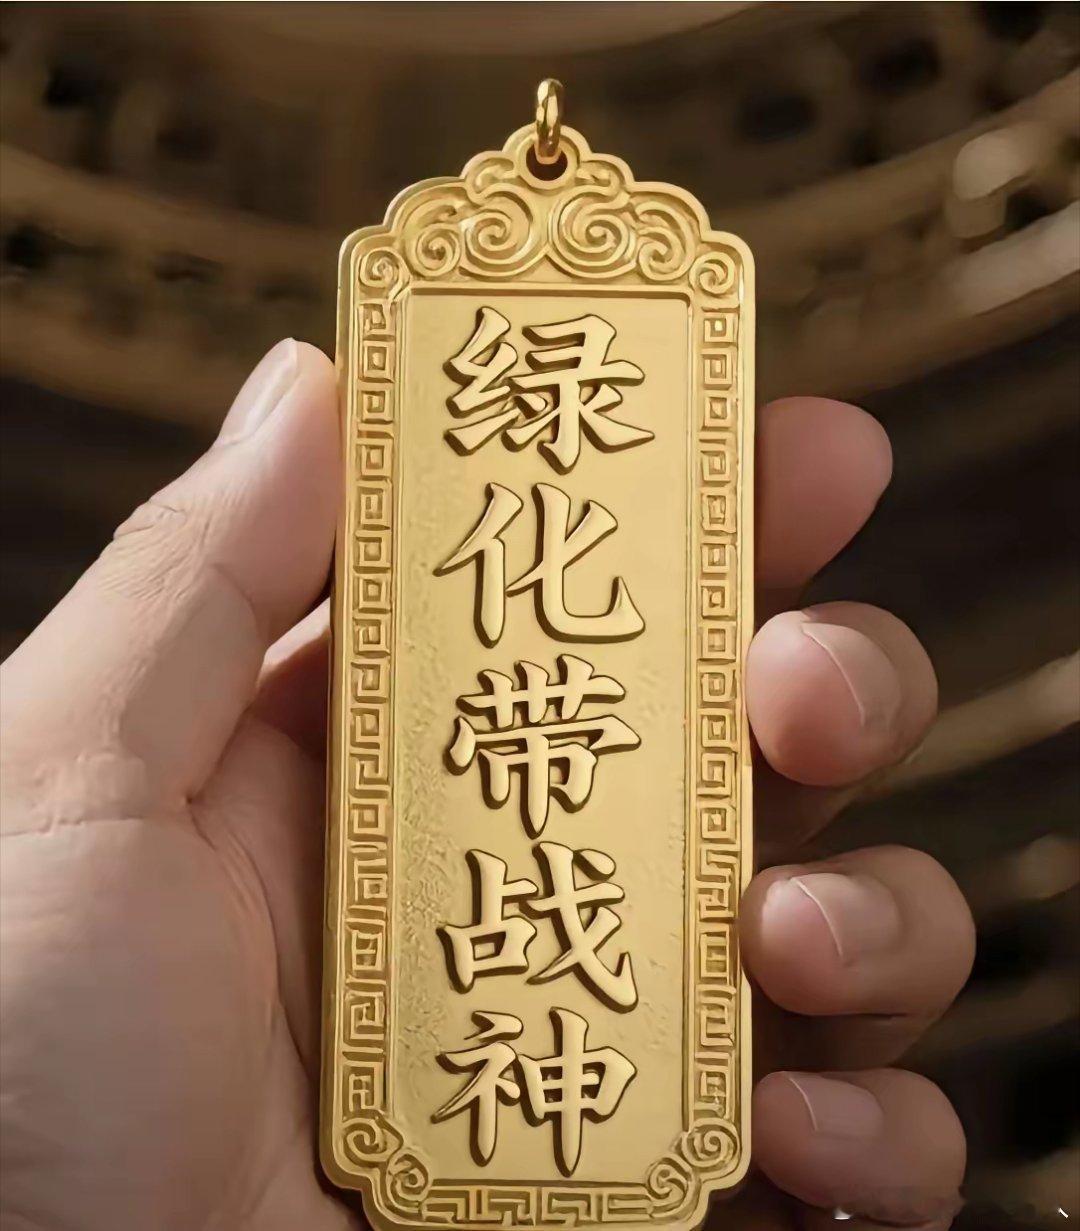 绿化带战神